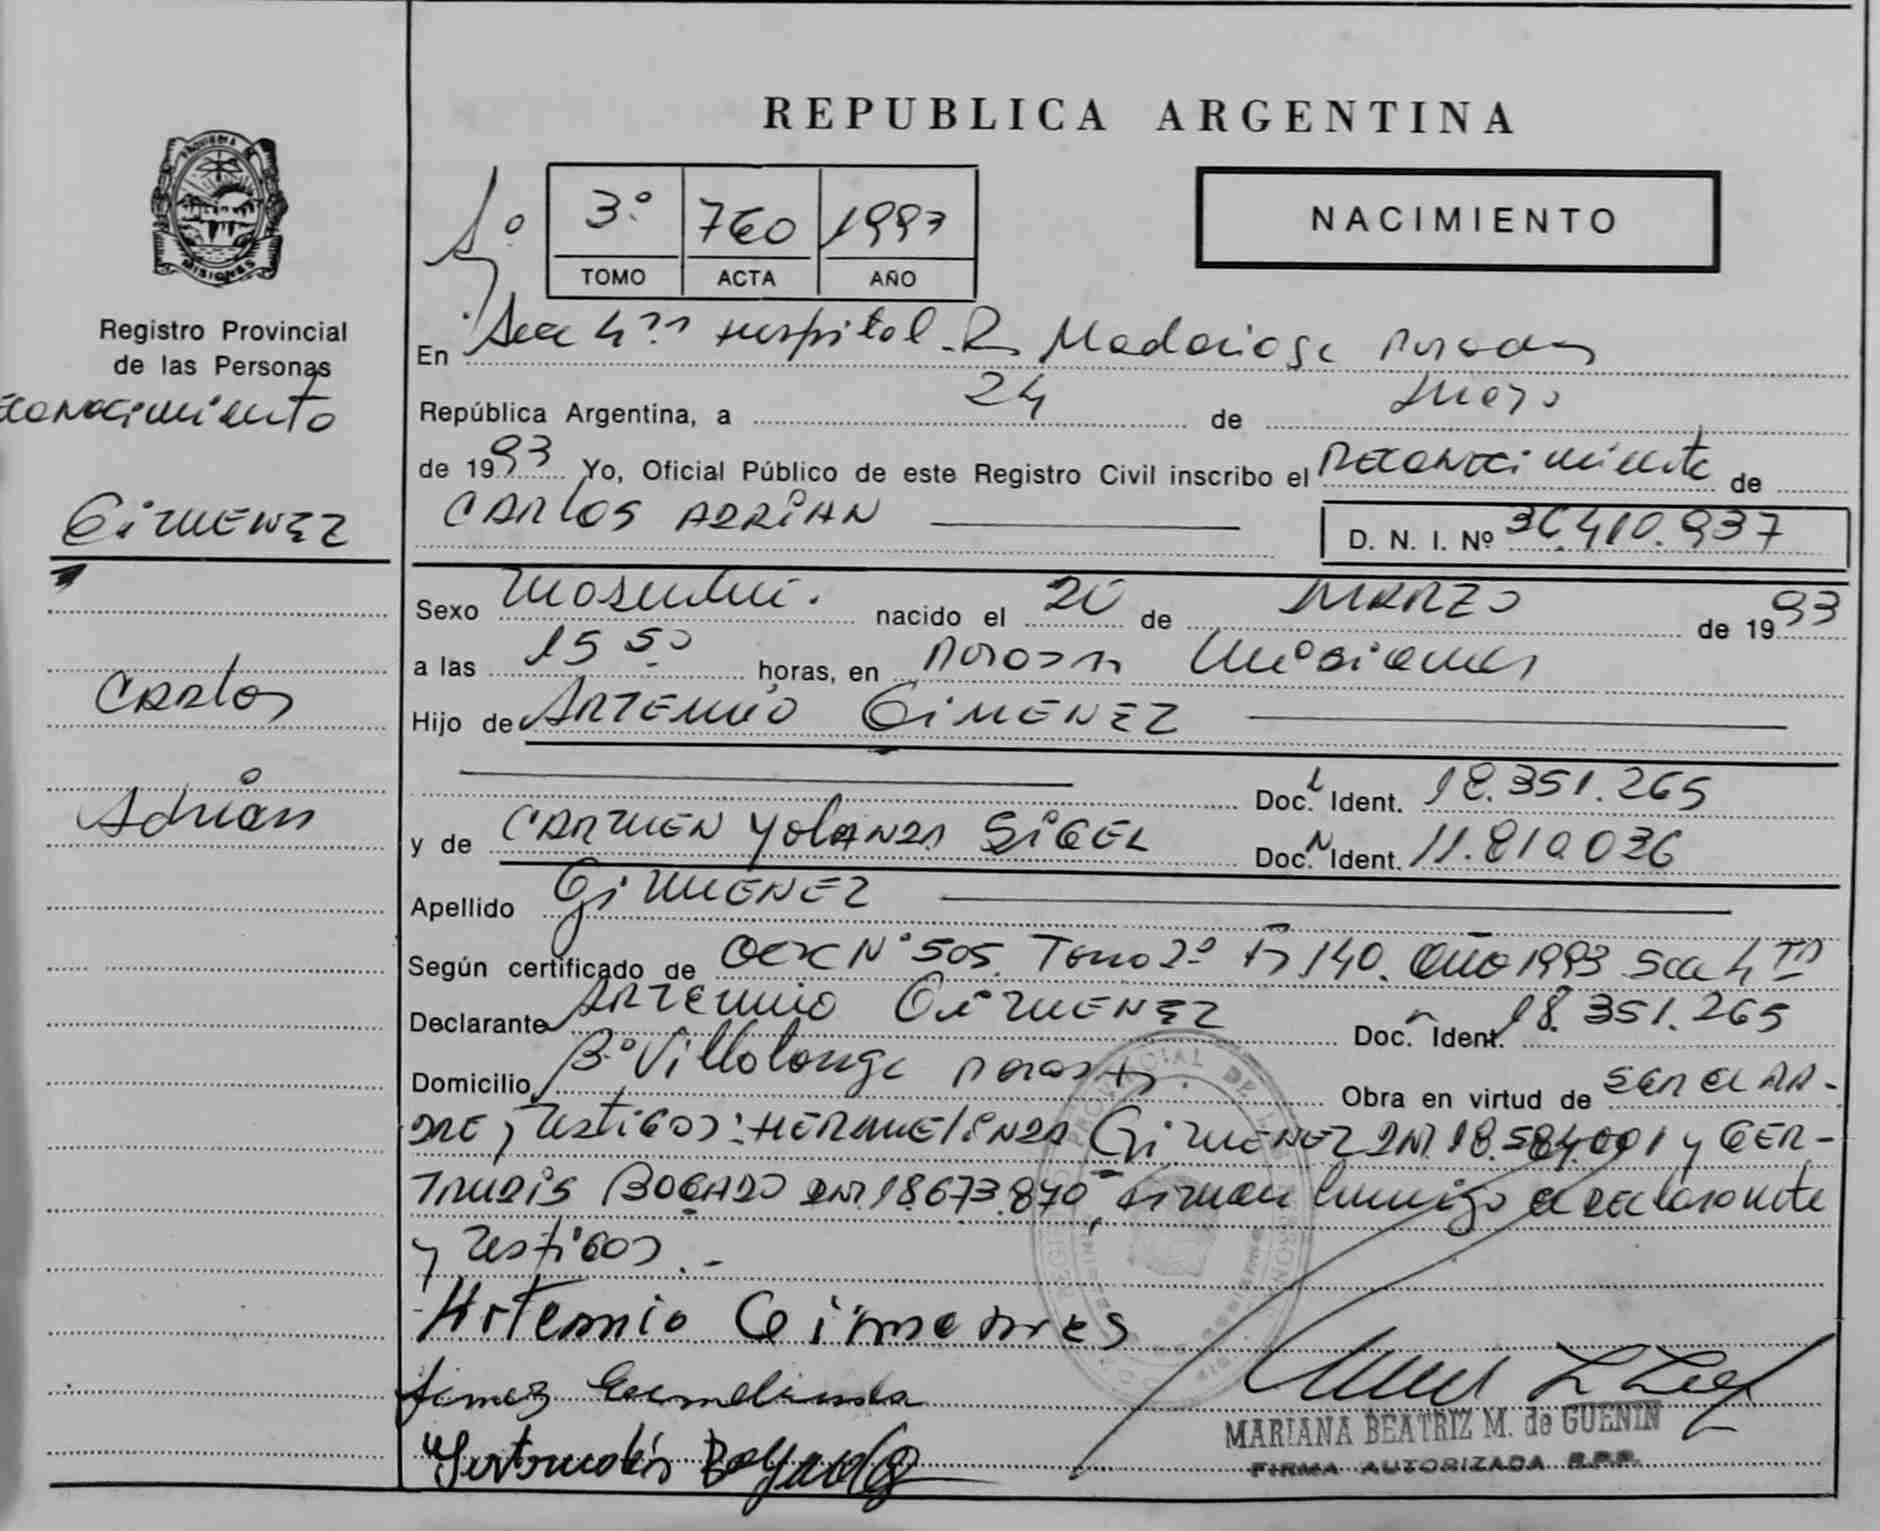 REPUBLICA ARGENTINA
PROVINCIA DE
MISIONES
Registro Provincial
de las Personas
NACIMIENTO
3º 760 1993
TOMO ACTA AÑO
En Secc 4ta Hospital R. Madariaga Posadas
República Argentina, a 24 de
de 1993 Yo, Oficial Público de este Registro Civil inscribo el Reconocimiento de
CARLOS ADRIAN
D. N. I. Nº 36.410.937
Sexo Masculino. nacido el 20 de MARZO de 1993
a las 15 50 horas, en Posadas Misiones
Hijo de ARTEMIO GIMENEZ
Doc. Ident. 18.351.265
y de CARMEN YOLANDA SIGEL Doc. Ident. 11.810.036
Apellido GIMENEZ
Según certificado de Acta Nº 505. Tomo 2º Fº 140. Año 1993 Secc 4ta
Declarante ARTEMIO GIMENEZ Doc. Ident. 18.351.265
Domicilio Bº Villalonga Posadas. Obra en virtud de SER EL PA-
DRE, Testigos: HERMELINDA GIMENEZ DNI. 18.584.001 y GER-
TRUDIS BOGADO DNI. 18.673.870, firman conmigo el declarante
y Testigos.-
Artemio Gimenes
Gimez Ermelinda
Gertrudis Bogado
MARIANA BEATRIZ M. de GUENIN
FIRMA AUTORIZADA R.P.P.
Reconocimiento
GIMENEZ
Carlos
Adrián